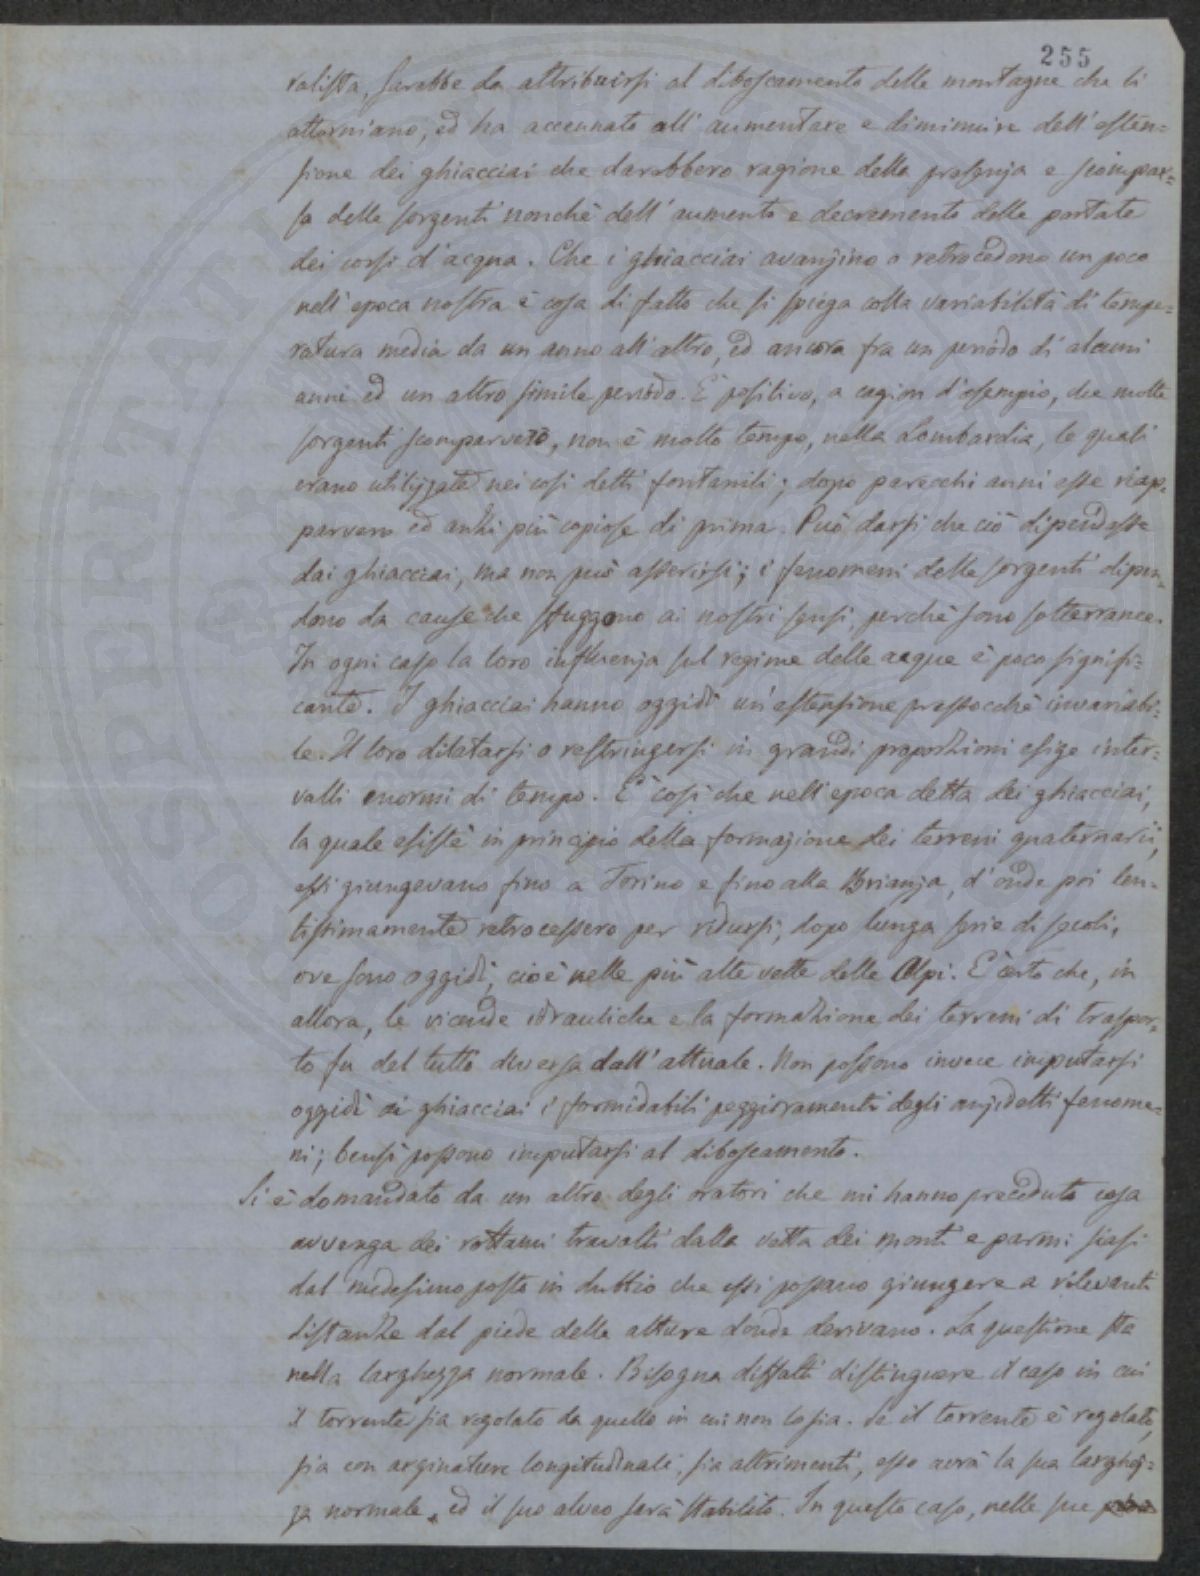 255
ralista, sarebbe da attribuirsi al diboscamento delle montagne che li
attorniano, ed ha accennato all' aumentare e diminuire dell' esten=
sione dei ghiacciai che darebbero ragione della presenza e scompar=
sa delle sorgenti nonchè dell' aumento e decremento delle portate
dei corsi d'acqua. Che i ghiacciai avanzino o retrocedono un poco
nell' epoca nostra è cosa di fatto che si spiega colla variabilità di tempe=
ratura media da un anno all' altro, ed ancora fra un periodo di alcuni
anni ed un altro simile periodo. È positivo, a cagion d'esempio, che molte
sorgenti scomparvero, non è molto tempo, nella Lombardia, le quali
erano utilizzate nei così detti fontanili; dopo parecchi anni esse riap=
parvero ed anzi più copiose di prima. Può darsi che ciò dipendesse
dai ghiacciai, ma non può asserirsi; i fenomeni delle sorgenti dipen=
dono da cause che sfuggono ai nostri sensi, perchè sono sotterranee.
In ogni caso la loro influenza sul regime delle acque è poco signifi=
cante. I ghiacciai hanno oggidì un' estensione pressocchè invariabi=
le. Il loro dilatarsi o restringersi in grandi proporzioni esige inter=
valli enormi di tempo. È così che nell' epoca detta dei ghiacciai,
la quale esistè in principio della formazione dei terreni quaternarii,
essi giungevano fino a Torino e fino alla Brianza, d' onde poi len=
tissimamente retrocessero per ridursi, dopo lunga serie di secoli,
ove sono oggidì, cioè nelle più alte vette delle Alpi. È certo che, in
allora, le vicende idrauliche e la formazione dei terreni di traspor=
to fu del tutto diversa dall' attuale. Non possono invece imputarsi
oggidì ai ghiacciai i formidabili peggioramenti degli anzidetti fenome=
ni; bensì possono imputarsi al diboscamento.
Si è domandato da un altro degli oratori che mi hanno preceduto cosa
avvenga dei rottami travolti dalla vetta dei monti e parmi siasi
dal medesimo posto in dubbio che essi possano giungere a rilevanti
distanze dal piede delle alture donde derivano. La questione sta
nella larghezza normale. Bisogna diffatti distinguere il caso in cui
il torrente sia regolato da quello in cui non lo sia. Se il torrente è regolato,
sia con arginature longitudinali, sia altrimenti, esso avrà la sua larghez=
za normale, ed il suo alveo sarà stabilito. In questo caso, nelle sue
PROSPERITATI PUBLICAE